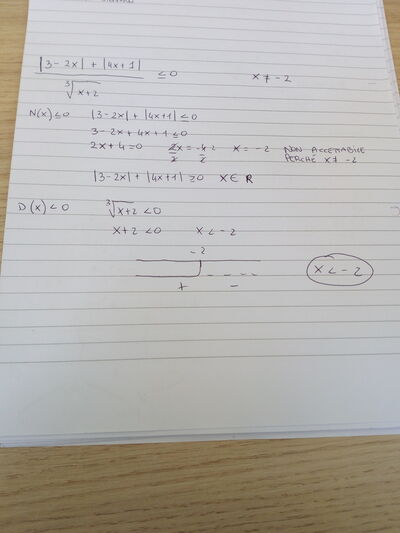 |3-2x| + |4x+1|
∛x+2 ≤0 x ≠ -2
N(x)≤0 |3-2x| + |4x+1| ≤0
3-2x+4x+1≤0
2x+4=0 2x/2 = -4/2 = x = -2 NON ACCETTABILE
PERCHÉ x≠-2
|3-2x| + |4x+1| ≥0 x∈R
D(x)<0 ∛x+2 <0
x+2 <0 x<-2
-2
+ -
x<-2